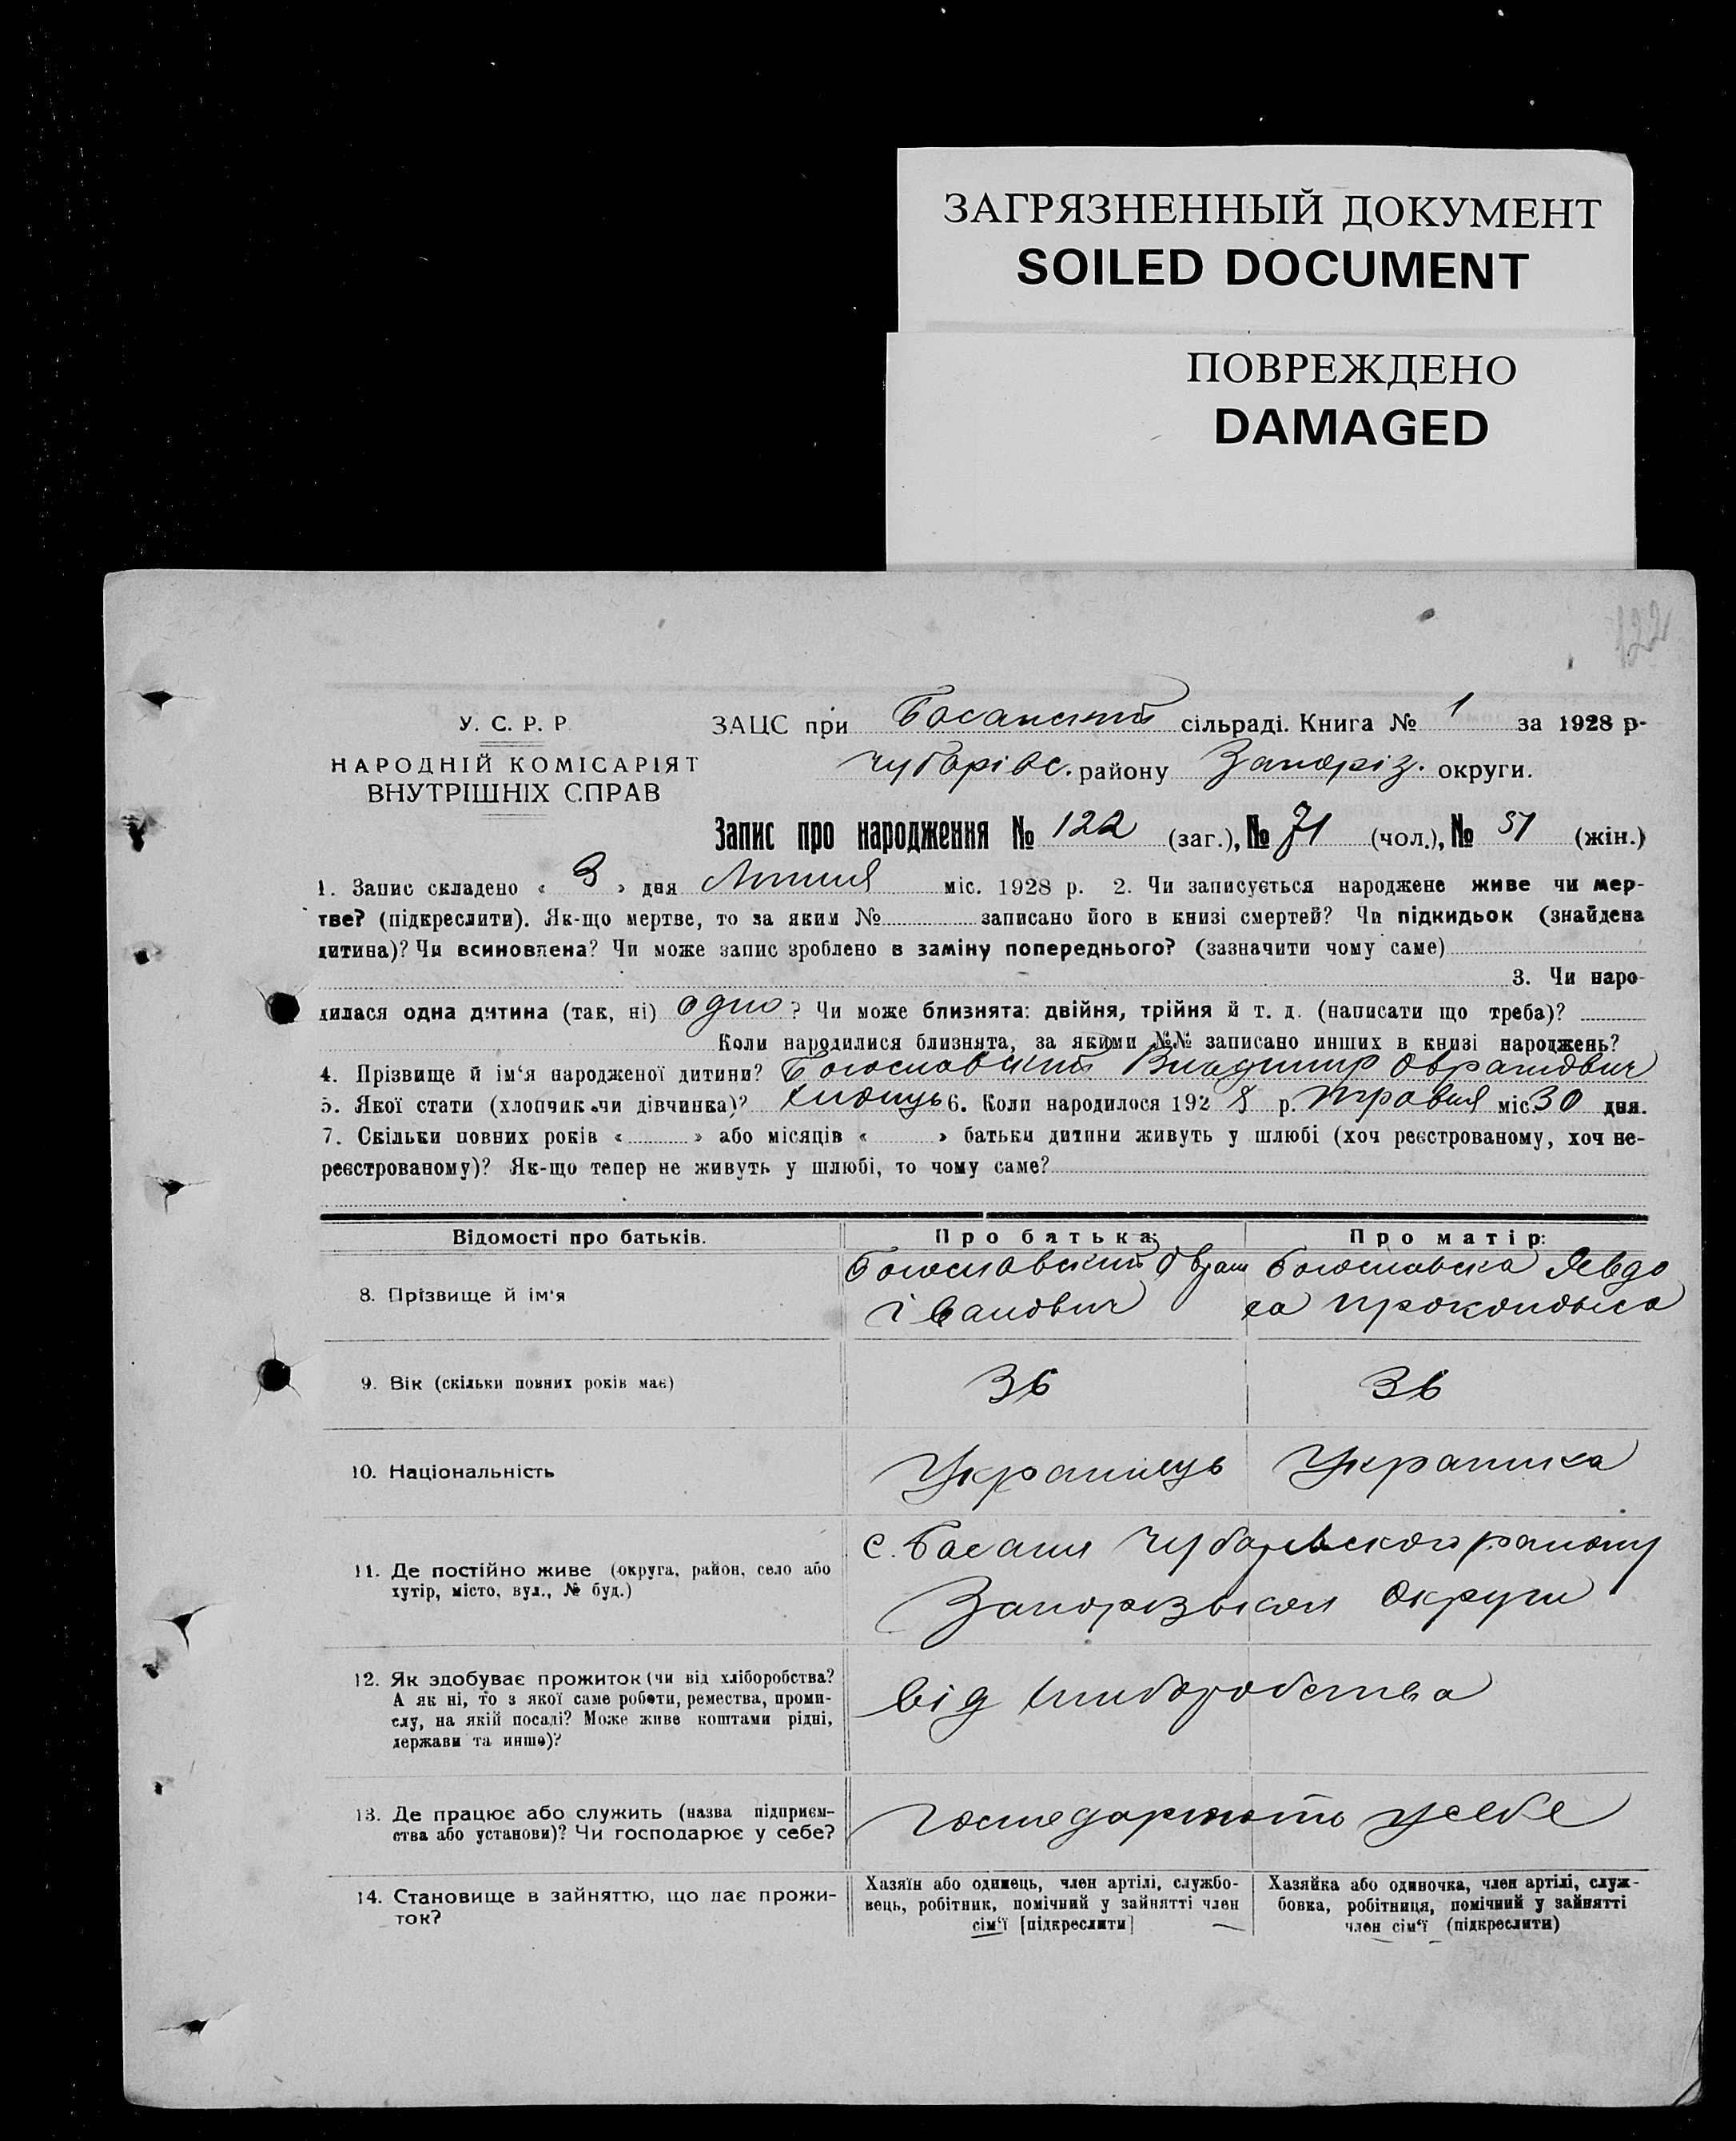 ЗАГРЯЗНЕННЫЙ ДОКУМЕНТ
SOILED DOCUMENT
ПОВРЕЖДЕНО
DAMAGED
122
У. С. Р. Р
НАРОДНІЙ КОМІСАРІЯТ
ВНУТРІШНІХ СПРАВ
ЗАЦС при Басанский сільраді. Книга № 1 за 1928 р-
Чубарівс. району Запоріз. округи.
Запис про народження № 122 (заг.), № 71 (чол.), № 51 (жін.)
1. Запис складено « 3 » дня Липня міс. 1928 р. 2. Чи записується народжене живе чи мер-
тве? (підкреслити). Як-що мертве, то за яким № записано його в книзі смертей? Чи підкидьок (знайдена
дитина)? Чи всиновлена? Чи може запис зроблено в заміну попереднього? (зазначити чому саме)
3. Чи наро-
дилася одна дитина (так, ні) одно ? Чи може близнята: двійня, трійня й т. д. (написати що треба)?
Коли народилися близнята, за якими №№ записано инших в книзі народжень?
4. Прізвище й ім'я народженої дитини? Богославский Владимир Оврамович
5. Якої стати (хлопчик чи дівчинка)? хлопець 6. Коли народилося 1928 р. Травня міс. 30 дня.
7. Скільки повних років « » або місяців « » батьки дитини живуть у шлюбі (хоч реєстрованому, хоч не-
реєстрованому)? Як-що тепер не живуть у шлюбі, то чому саме?
Відомості про батьків. Про батька: Про матір:
8. Прізвище й ім'я Богославский Оврам Богославска Явдо
Іванович ха Прокоповна
9. Вік (скільки повних років має) 36 36
10. Національність Українець Українка
11. Де постійно живе (округа, район, село або
хутір, місто, вул., № буд.)
с. Басань Чубарівського району
Запорізької Округи
12. Як здобуває прожиток (чи від хліборобства?
А як ні, то з якої саме роботи, ремества, проми-
слу, на якій посаді? Може живе коштами рідні,
держави та инше)?
від хліборобства
13. Де працює або служить (назва підприєм-
ства або установи)? Чи господарює у себе?
господарюють у себе
14. Становище в зайняттю, що дає прожи-
ток?
Хазяїн або одинець, член артілі, службо-
вець, робітник, помічний у зайнятті член
сім'ї [підкреслити]
Хазяйка або одиночка, член артілі, служ-
бовка, робітниця, помічний у зайнятті
член сім'ї (підкреслити)